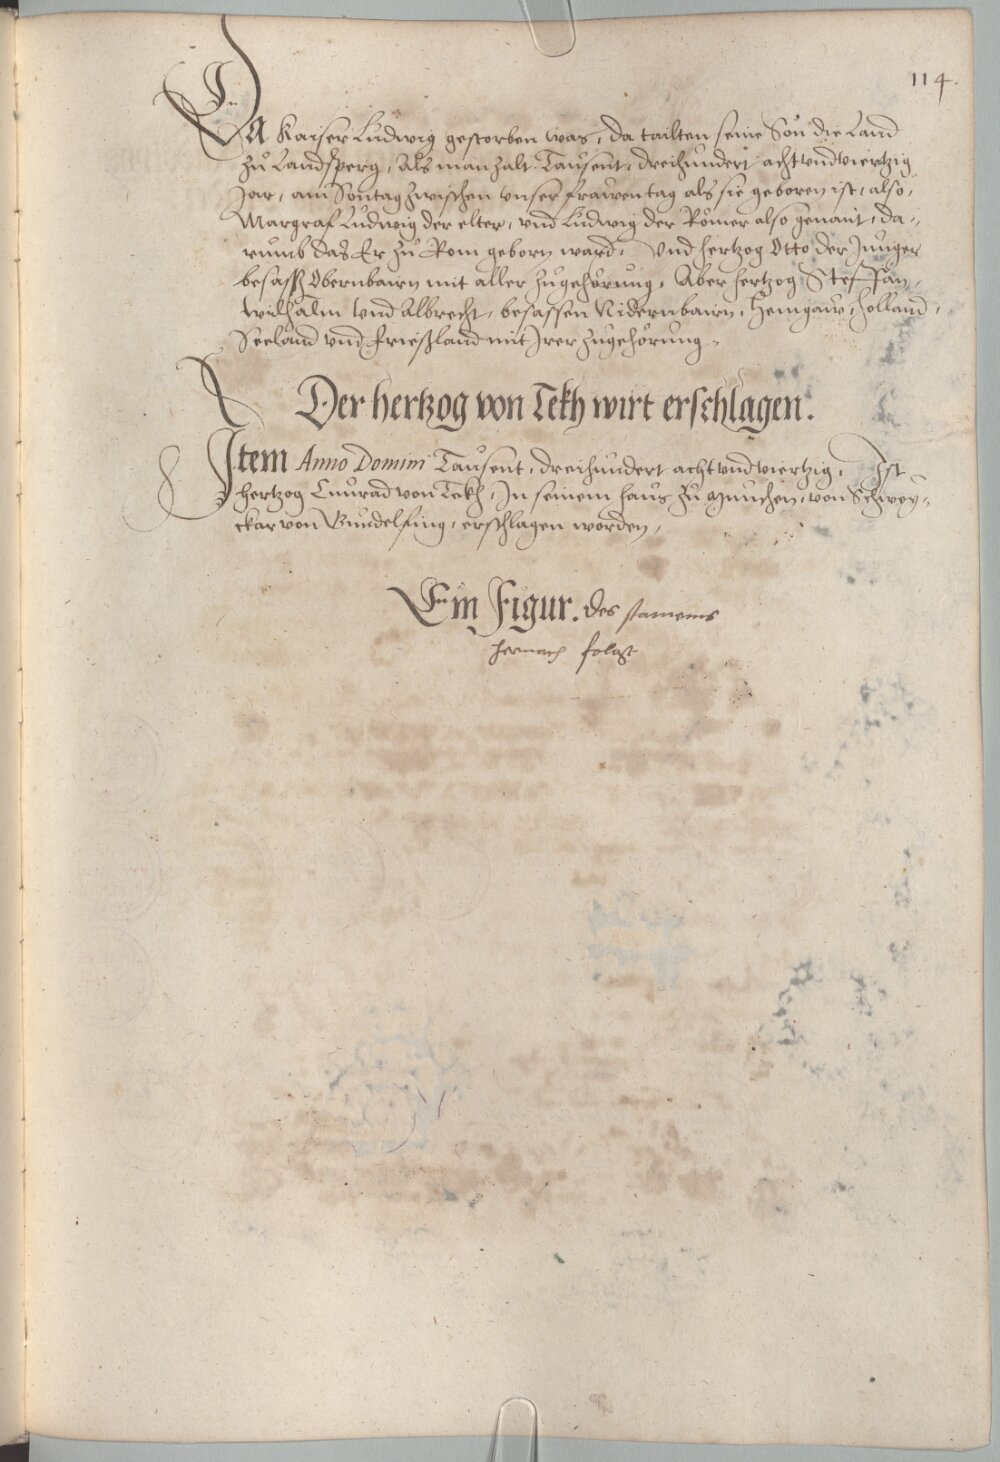 114.
Da Kaiser Ludwig gestorben was, da tailten seine Son die Land
zu Landsperg, Als man zalt Tausent, dreihundert acht und viertzig
Jar, am Sontag zwischen unser frawen tag als sie geboren ist, also,
Margraf Ludwig der elter, und Ludwig der Römer also genant, da„
rumb das Er zu Rom geborn ward, Und hertzog Otto der Junger
besassz Obernbairn mit aller zugehörung, Aber hertzog Steffan,
Wilhalm und Albrecht, besassen Nidernbairn, Henigaw, Holland,
Seeland und frießland mit Irer zugehörung.
Der hertzog von Tekh wirt erschlagen.
Item Anno Domini Tausent, dreihundert acht und viertzig, Ist
hertzog Cunrad von Tekh, In seinem haus zu Munchen, von Schwey„
ckar von Gundelfing, erschlagen worden,
Ein Figur. des stamens
hernach folgt